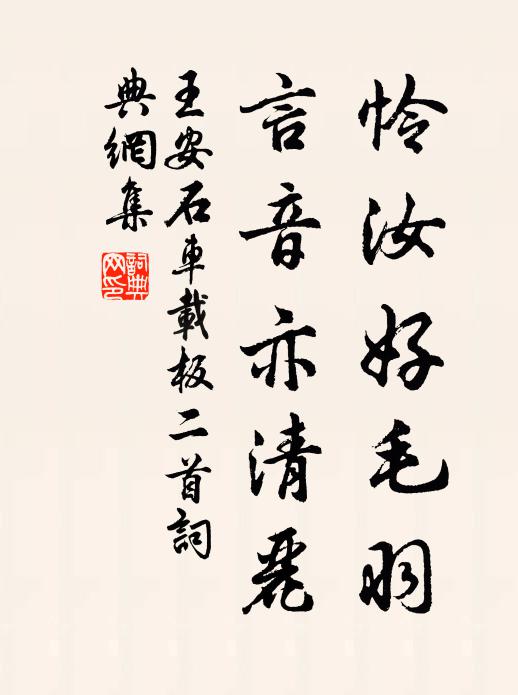 怜汝好毛羽
言音亦清麗
王安石車載板二首詞
典網集
詞典
网印